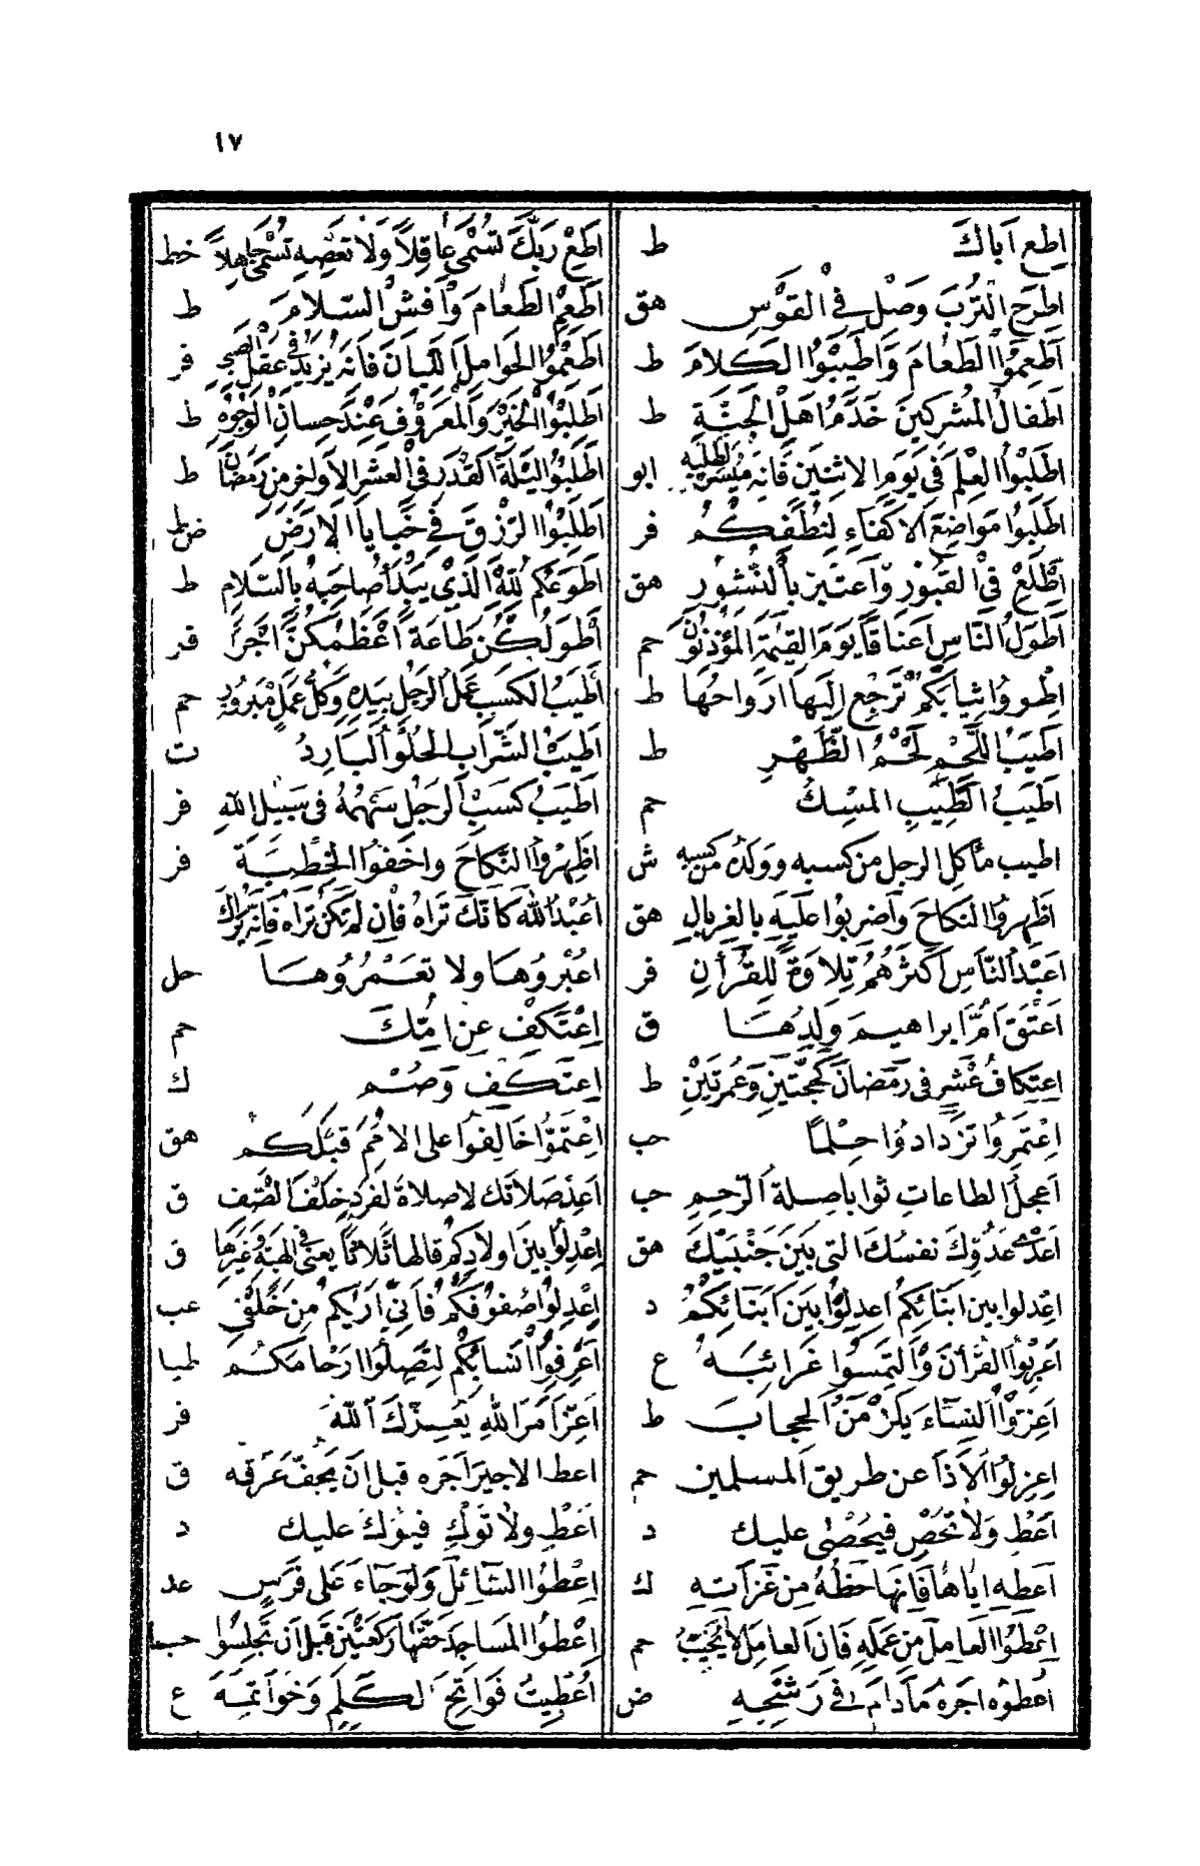 ١٧
اطع اَبَاكَ ط
اطرح التُّربَ وَصَلِّ في القَوْسِ هق
اَطْعِمُوا الطَّعَامَ وَاَطْيِبُوا الكَلامَ ط
اَطفالُ المُشركينَ خَدَمُ اهلِ الجنَّةِ ط
اطلبُوا العِلمَ في يَومِ الاثنينِ فَانهُ مُيَسَّرٌ لطلبه ابو
اطلبُوا مَوَاضِعَ الاكفَاءِ لِنُطَفِكُم فر
اطَّلِعْ في القبُورِ وَاعتَبِرْ بِالنُّشُورِ هق
اَطوَلُ النَّاسِ اَعنَاقًا يَومَ القيٰمَةِ المُؤَذِّنُونَ حم
اطووا ثيابَكُم تَرجِع اِلَيهَا ارَوَاحُهَا ط
اَطيَبُ اللَّحمِ لَحمُ الظَّهرِ ط
اَطيَبُ الطِّيبِ المِسكُ حم
اطيب ما اكل الرجل من كسبه وولده من كسبه ش
اَظهِرُوا النكاحَ وَاضرِبُوا عَلَيهِ بالغربالِ هق
اَعبَدُ النَّاسِ اَكثَرُهُم تِلاوَةً لِلقُرآنِ فر
اَعتَقَ اُمَّ ابراهيمَ وَلَدُهَا ق
اِعتِكافُ عَشرٍ في رَمَضانَ كحَجَّتَينِ وَعُمرَتَينِ ط
اِعتَمِرُوا تزدادوُا حِلمًا حب
اَعجَلُ الطاعاتِ ثوابا صِلةُ الرّحِمِ حب
اَعدى عَدُوِّكَ نفسُكَ التي بَينَ جَنبَيكَ هق
اعدلوا بين ابنائِكُم اعدلوُا بَينَ اَبنَائِكُم د
اَعرِبُوا القُرآنَ وَالتَمِسُوا غَرائِبَهُ ع
اعزوا النِّسَاءَ يَلزَمنَ الحِجابَ ط
اعزلوا الاَذا عن طريقِ المسلمين حم
اَعطِ وَلا تُحصِ فيُحصى عليك د
اَعطهِ اياهَا فَانهَا حَظُّهُ مِن غَزَاتِهِ ك
اَعطوا العَامِلَ مِن عَمَلهِ فَان العامِلَ لا يَخيبُ حم
اعطوه اجرَهُ مَا دَامَ في رَشحِهِ ض
اَطِع رَبَّكَ تُسَمّى عاقِلاً وَلا تَعصِهِ تُسَمّى جَاهِلاً خط
اَطعِمِ الطَعامَ وَاَفشِ السّلامَ ط
اَطعِمُوا الحَوامِلَ اللبانَ فَانهُ يزيدُ في عَقلِ الصبي فر
اطلبُوا الخيرَ وَالمَعروفَ عِندَ حِسانِ الوُجُوهِ ط
اطلبُوا ليلَةَ القدرِ في العَشرِ الاَواخِرِ مِن رَمَضانَ ط
اطلبُوا الرّزقَ في خَبايا الارَضِ ض ط
اَطوَعُكُم للهِ الَّذي يَبدَأُ صاحبَهُ بالسَّلامِ ط
اَطوَلُكُنَّ طَاعَةً اَعظَمُكُنَّ اَجرًا فر
اَطيَبُ الكَسبِ عَمَلُ الرَجُلِ بيَدِهِ وَكلُّ عَمَلٍ مَبرُورٍ حم
اَطيَبُ الشَّرابِ الحُلوُ البَارِدُ ت
اَطيَبُ كسبِ الرَجُلِ سَهمُهُ في سَبيلِ اللهِ فر
اَظهِرُوا النِّكَاحَ واخفوُا الخِطبَةَ فر
اُعبُدِ اللهَ كَانّكَ تَرَاهُ فَاِن لم تكن تراه فَاِنّه يَرَاكَ
اعبُرُوهَا ولا تعمُرُوهَا حل
اِعتَكِف عن اُمِّكَ حم
اِعتَكِف وَصُم ك
اِعتَمُّوا خَالِفوُا على الاُمَمِ قبلَكم هق
اَعِد صَلاتَكَ لا صلاةَ لفردٍ خَلفَ الصَّفِ ق
اِعدِلوُا بينَ اولادِكم قالها ثَلاثًا يعنى في الهبَةِ وَغَيرِهَا ق
اعدِلوُا صُفوفَكُم فَاِنّي اَراكُم مِن خَلفي عب
اعرِفوُا اَنسابَكُم لِتَصِلُوا ارحامَكُم طيا
اعزّ اَمرَ اللهِ يُعِزَّكَ اللهُ فر
اعط الاجيرَ اَجرَه قبل ان يجفّ عَرَقه ق
اَعطِ ولا تُوكِ فيوُكَ عليك د
اِعطُوا السَّائِلَ وَلوَ جَاءَ عَلى فَرَسٍ عد
اعطوا المَساجِدَ حقّهَا رَكعَتَينِ قبلَ ان تجلسُوا حب
اُعطِيتُ فَوَاتِحَ الكَلِمِ وَخوَاتمَهُ ع